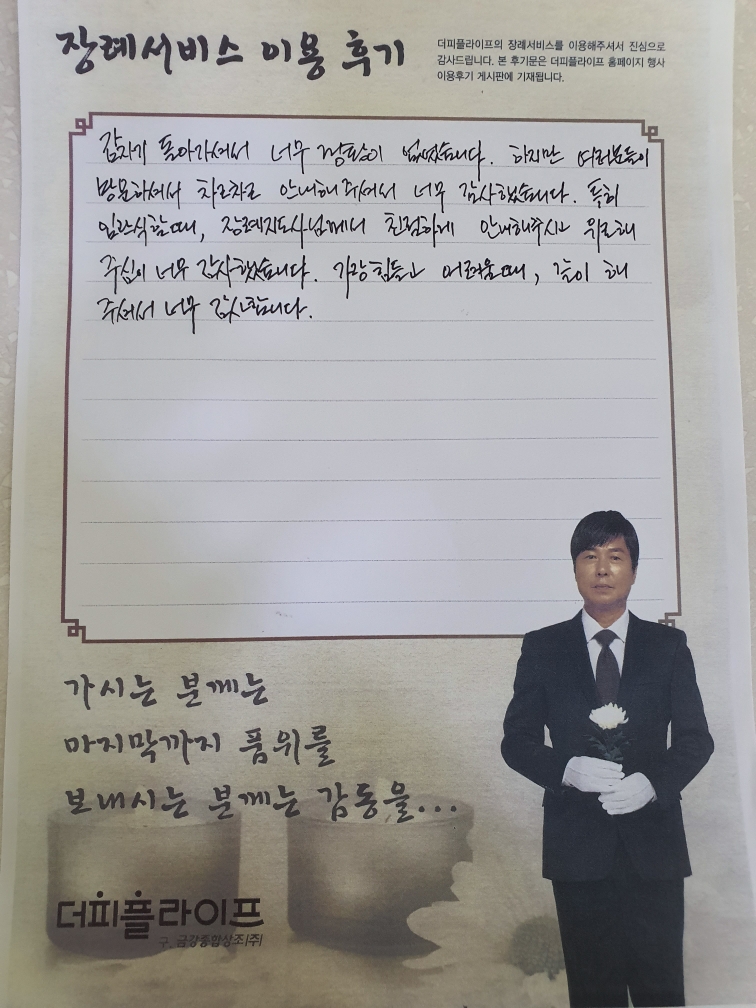 장례서비스 이용 후기
더피플라이프의 장례서비스를 이용해주셔서 진심으로
감사드립니다. 본 후기문은 더피플라이프 홈페이지 행사
이용후기 게시판에 기재됩니다.
갑자기 돌아가셔서 너무 경황이 없었습니다. 하지만 여러분들이
방문하셔서 차근차근 안내해주셔서 너무 감사했습니다. 특히
입관식할때, 장례지도사님께서 친절하게 안내해주시고 위로해
주심이 너무 감사했습니다. 가장 힘들고 어려울때, 같이 해
주셔서 너무 감사합니다.
가시는 분께는
마지막까지 품위를
보내시는 분께는 감동을...
더피플라이프
구. 금강종합상조(주)